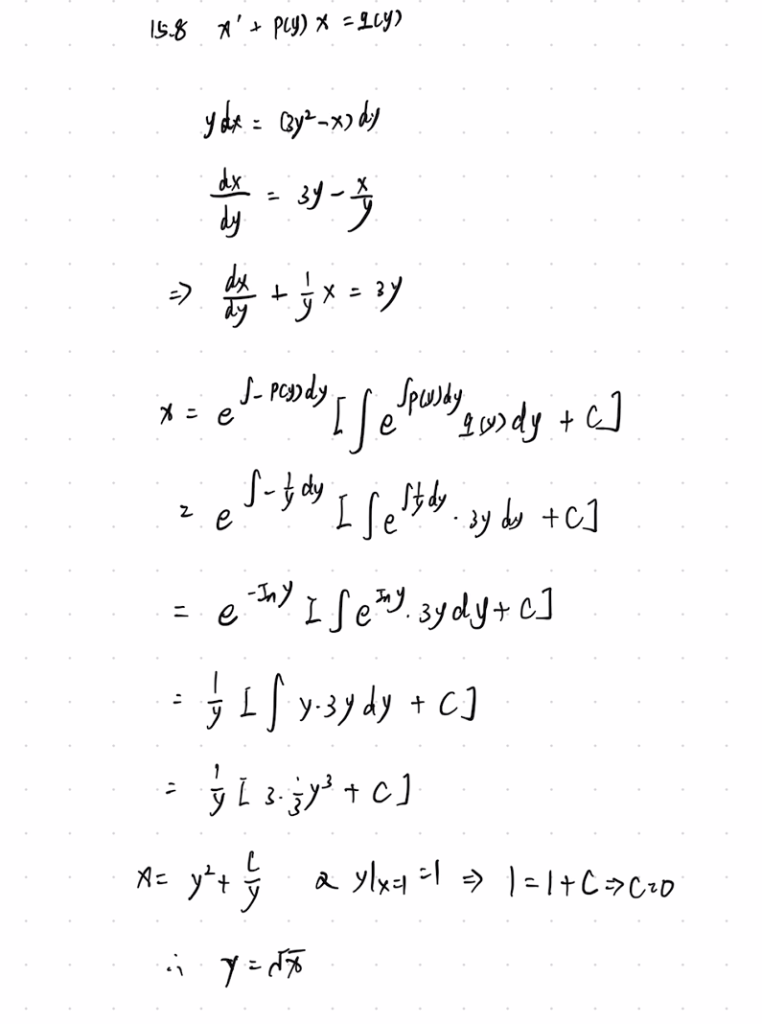 15.8 x' + p(y) x = q(y)
y dx = (3y² - x) dy
dx/dy = 3y - x/y
⇒ dx/dy + 1/y x = 3y
x = e^{∫-p(y)dy} [∫ e^{∫p(y)dy} q(y) dy + C]
= e^{∫-1/y dy} [∫ e^{∫1/y dy} · 3y dy + C]
= e^{-ln y} [∫ e^{ln y} · 3y dy + C]
= 1/y [∫ y·3y dy + C]
= 1/y [3·1/3 y³ + C]
x = y² + C/y 又 y|x=1 = 1 ⇒ 1 = 1 + C ⇒ C = 0
∴ y = √x